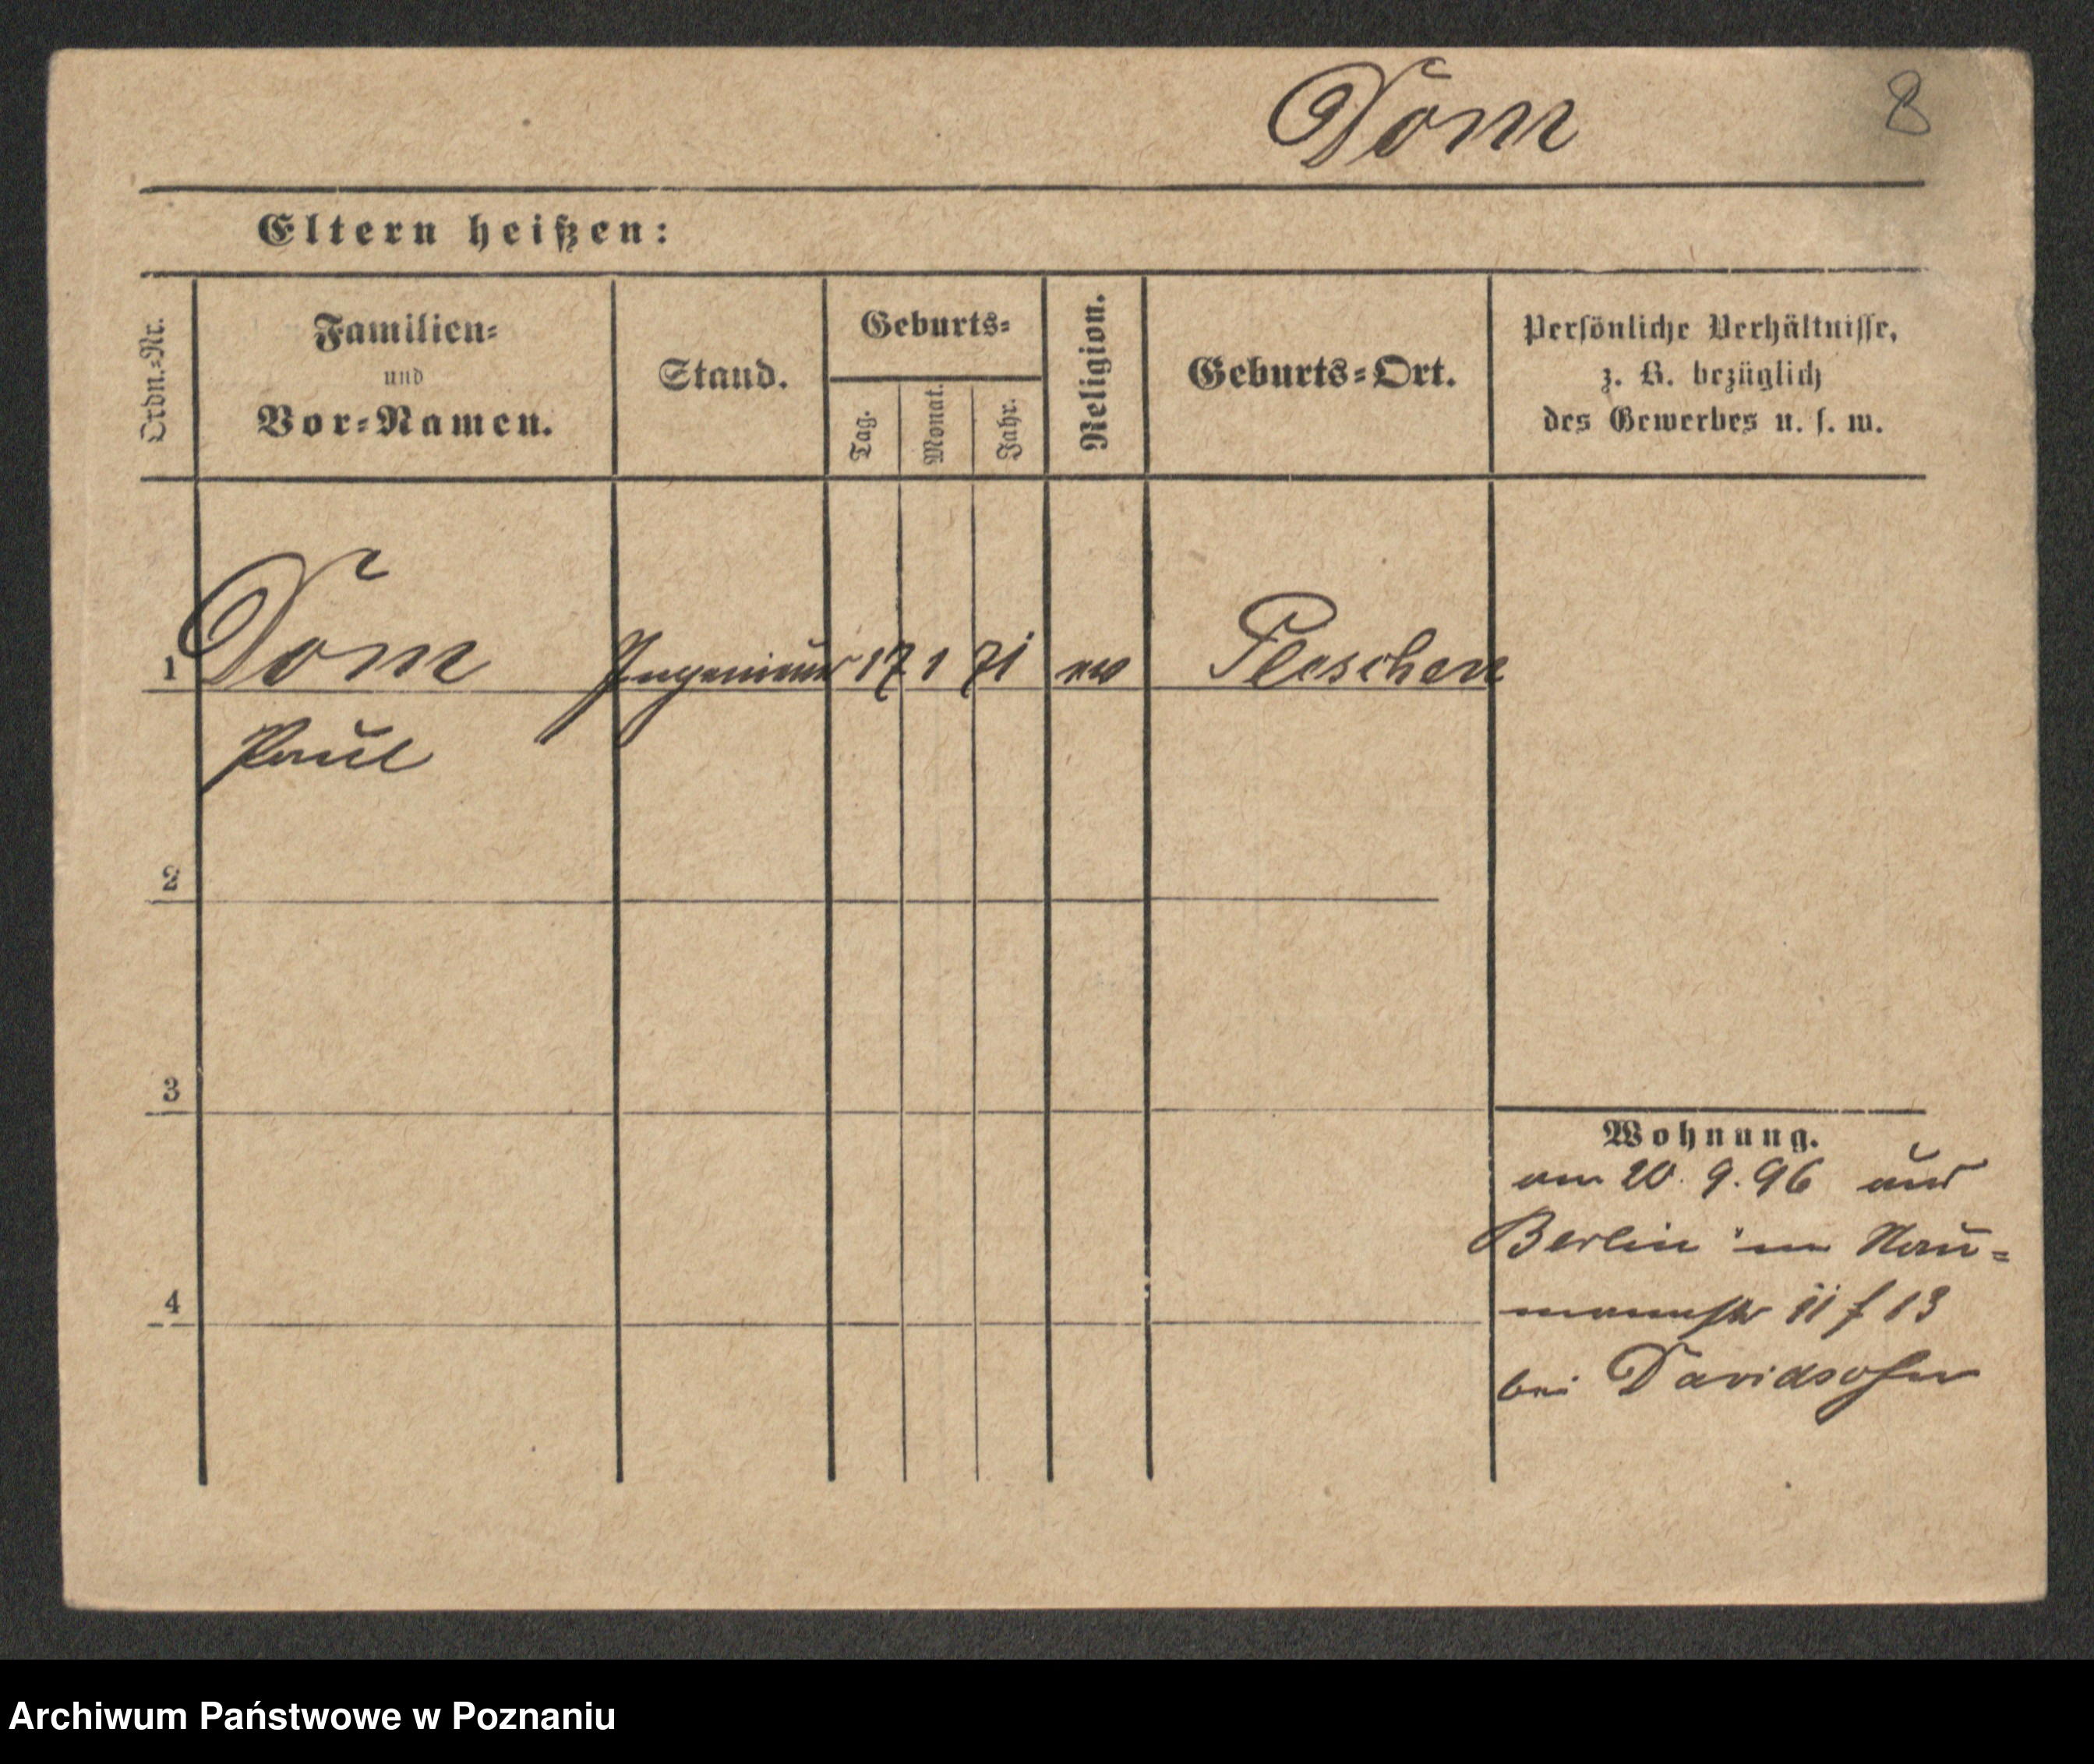 Dom 8
Eltern heißen:
Ordn.=Nr.
Familien=
und
Vor=Namen.
Stand.
Geburts=
Tag.
Monat.
Jahr.
Religion.
Geburts=Ort.
Persönliche Verhältnisse,
z. B. bezüglich
des Gewerbes u. s. w.
1 Dom Ingenieur 17 1 71 Pleschen
Paul
2
3
4
Wohnung.
am 20. 9. 96 aus
Berlin in Nau=
mannstr 11 f 13
bei Davidsohn
Archiwum Państwowe w Poznaniu